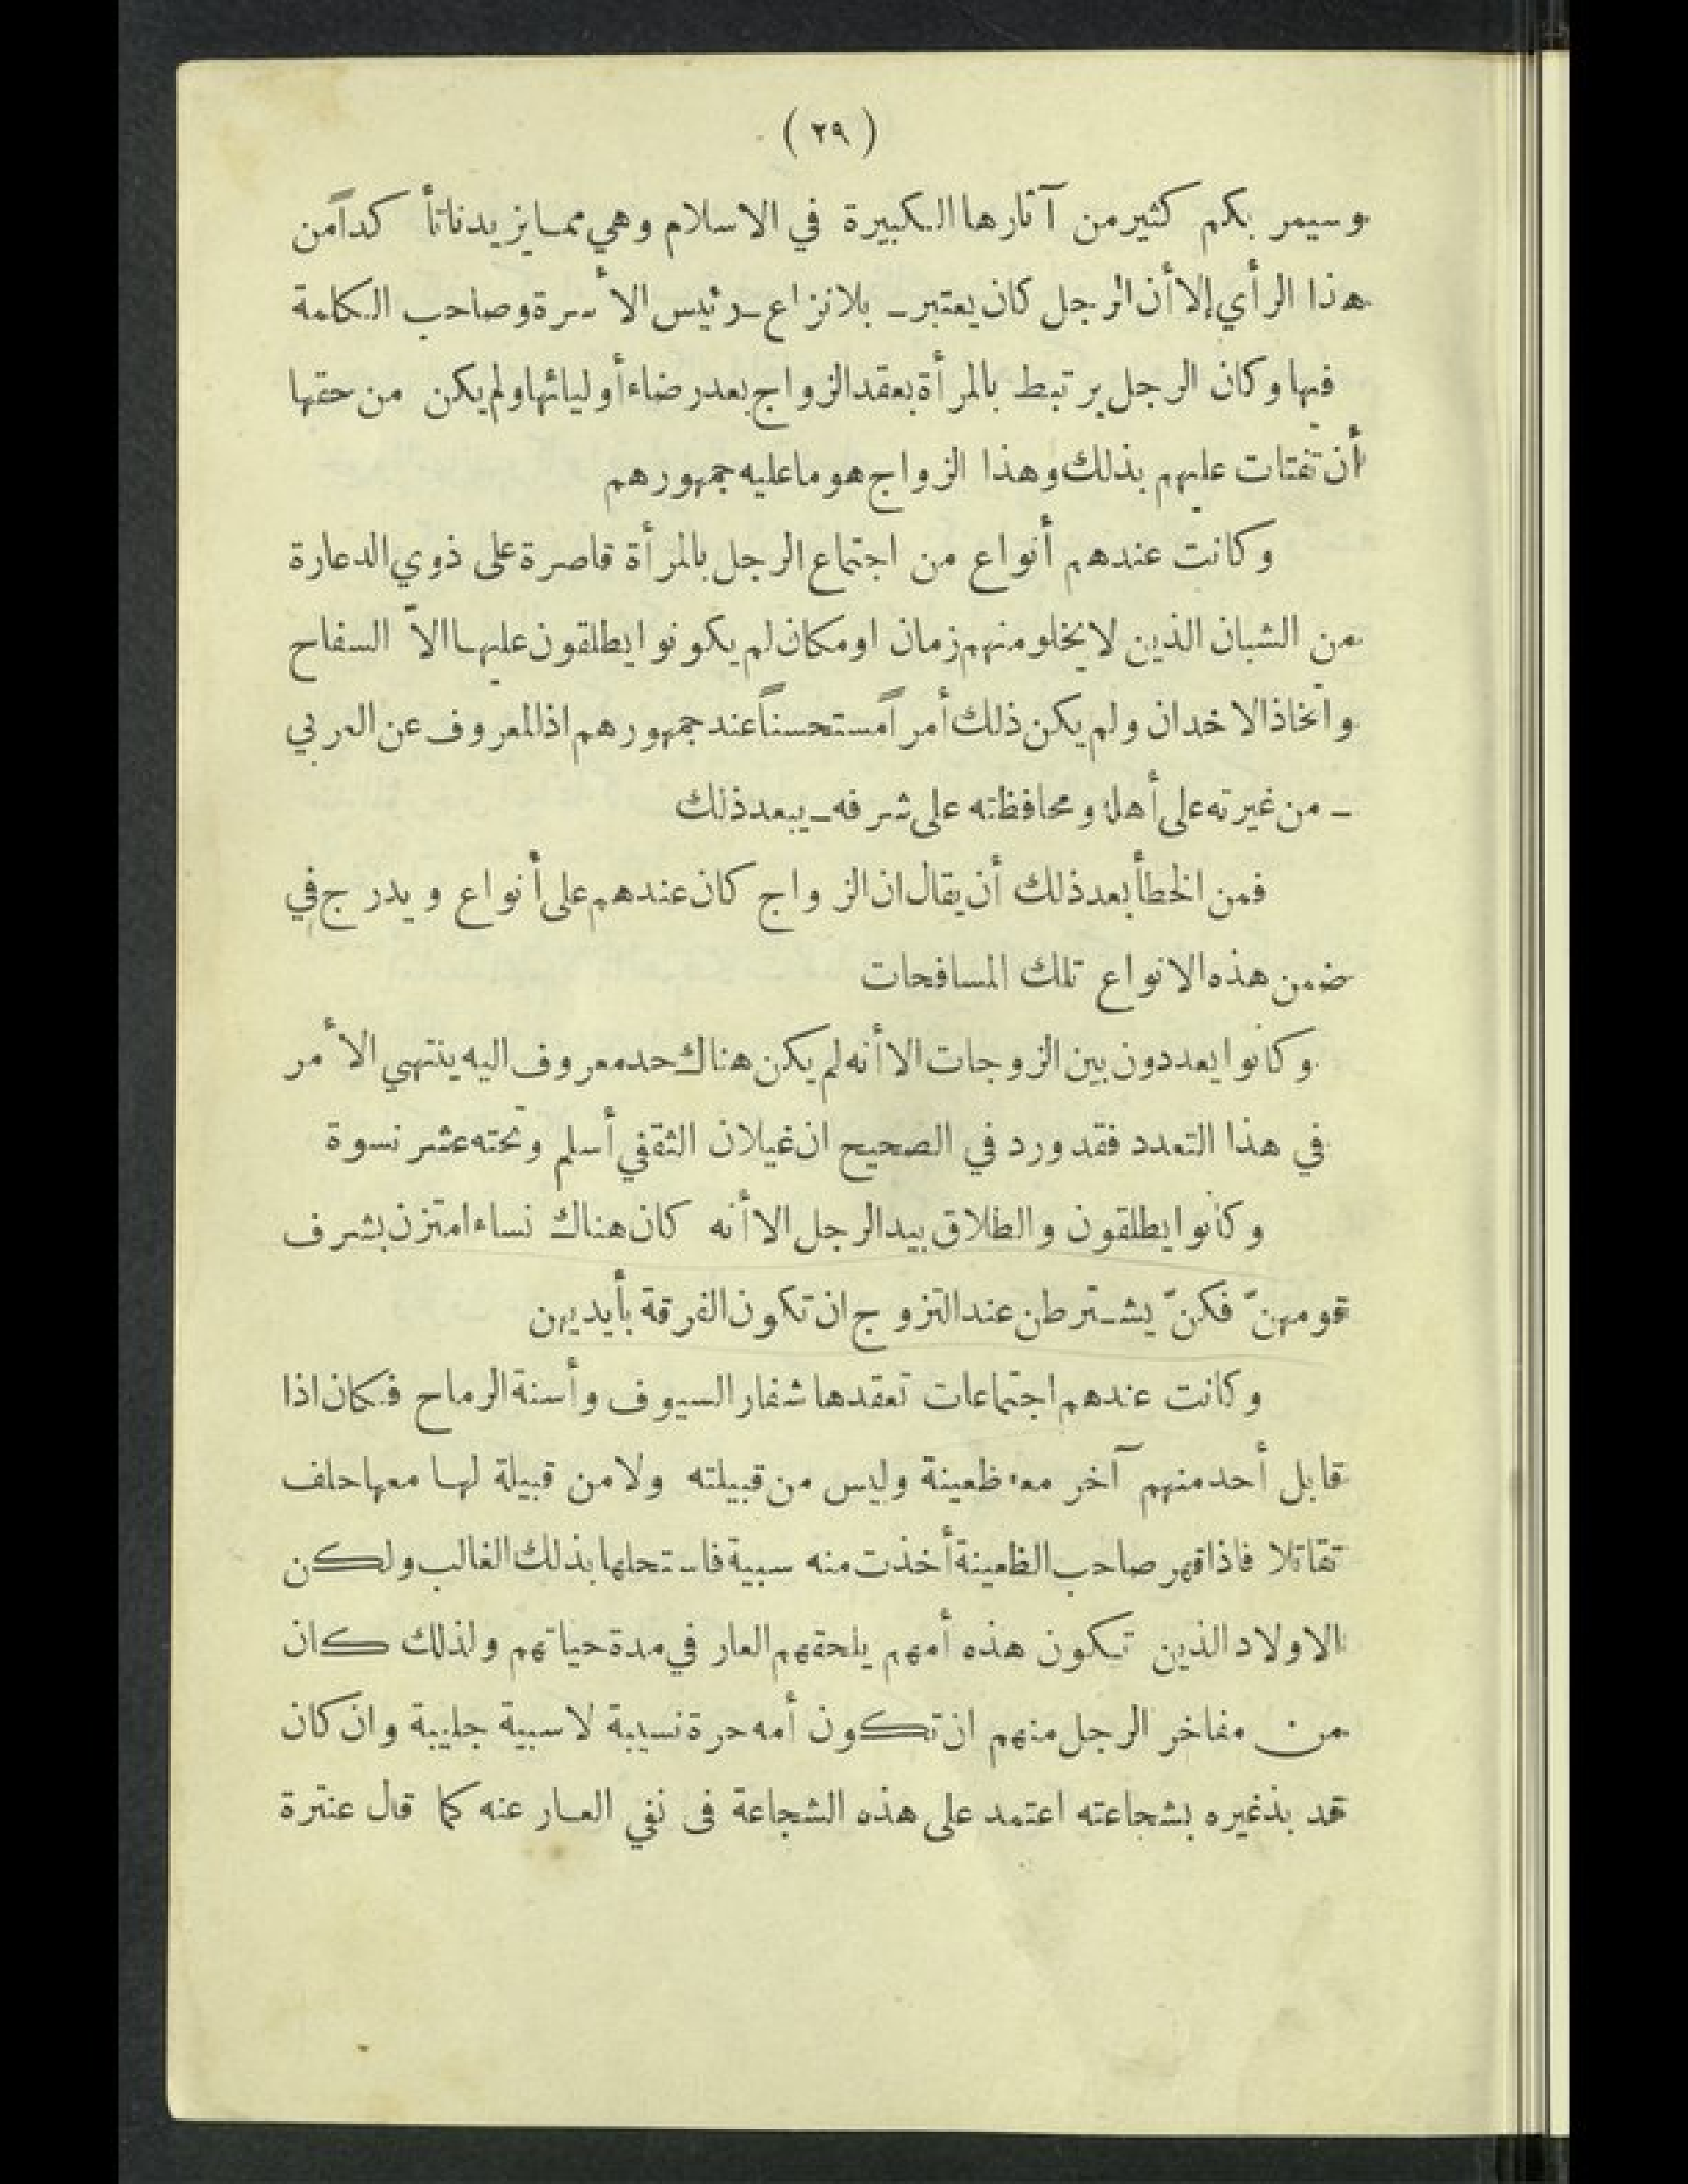 ( ٢٩ )
وسيمر بكم كثير من آثارها الكبيرة في الاسلام وهي مما يزيدنا تأكداً من
هذا الرأي إلا أن الرجل كان يعتبر ـ بلا نزاع ـ رئيس الأسرة وصاحب الكلمة
فيها وكان الرجل يرتبط بالمرأة بعقد الزواج بعد رضاء أوليائها ولم يكن من حقها
أن تفتات عليهم بذلك وهذا الزواج هو ما عليه جمهورهم
وكانت عندهم أنواع من اجتماع الرجل بالمرأة قاصرة على ذوي الدعارة
من الشبان الذين لا يخلو منهم زمان او مكان لم يكونوا يطلقون عليها الاّ السفاح
واتخاذ الاخدان ولم يكن ذلك أمراً مستحسناً عند جمهورهم اذ المعروف عن العربي
ـ من غيرته على أهله ومحافظته على شرفه ـ يبعد ذلك
فمن الخطأ بعد ذلك أن يقال ان الزواج كان عندهم على أنواع ويدرج في
ضمن هذه الانواع تلك المسافحات
وكانوا يعددون بين الزوجات الا أنه لم يكن هناك حد معروف اليه ينتهي الأمر
في هذا التعدد فقد ورد في الصحيح ان غيلان الثقفي أسلم وتحته عشر نسوة
وكانوا يطلقون والطلاق بيد الرجل الا أنه كان هناك نساء امتزن بشرف
قومهنّ فكنّ يشترطن عند التزوج ان تكون الفرقة بأيديهن
وكانت عندهم اجتماعات تعقدها شفار السيوف وأسنة الرماح فكان اذا
قابل أحد منهم آخر معه ظعينة وليس من قبيلته ولا من قبيلة لها معها حلف
تقاتلا فاذا قهر صاحب الظعينة أخذت منه سبية فاستحلها بذلك الغالب ولكن
الاولاد الذين تكون هذه أمهم يلحقهم العار في مدة حياتهم ولذلك كان
من مفاخر الرجل منهم ان تكون أمه حرة نسيبة لا سبية جليبة وان كان
قد بذ غيره بشجاعته اعتمد على هذه الشجاعة فى نفي العار عنه كما قال عنترة